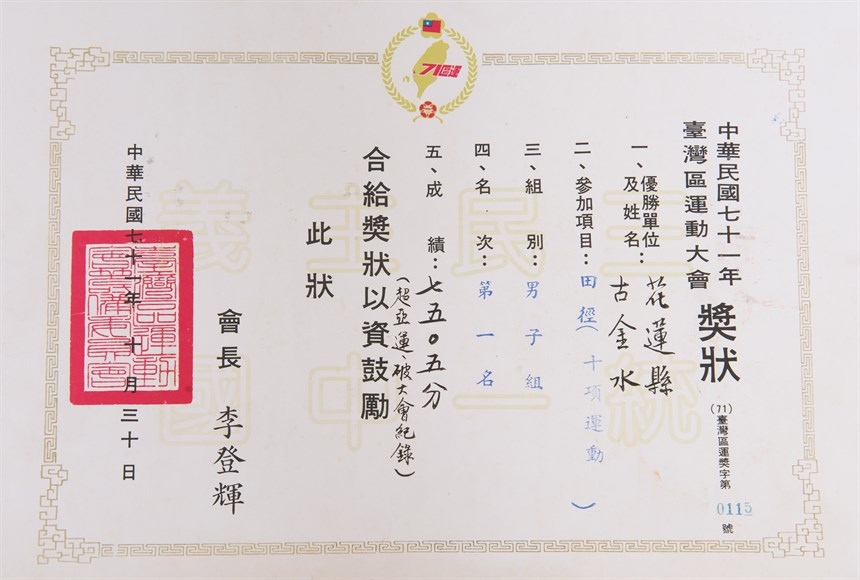 71區運
中華民國七十一年
臺灣區運動大會
獎狀
(71)臺灣區運獎字第0115號
一、優勝單位
及姓名：
花蓮縣
古金水
二、參加項目：田徑（十項運動）
三、組別：男子組
四、名次：第一名
五、成績：七五○五分
（超亞運、破大會紀錄）
合給獎狀以資鼓勵
此狀
會長 李登輝
中華民國七十一年 十月三十日
三民主義
統一中國